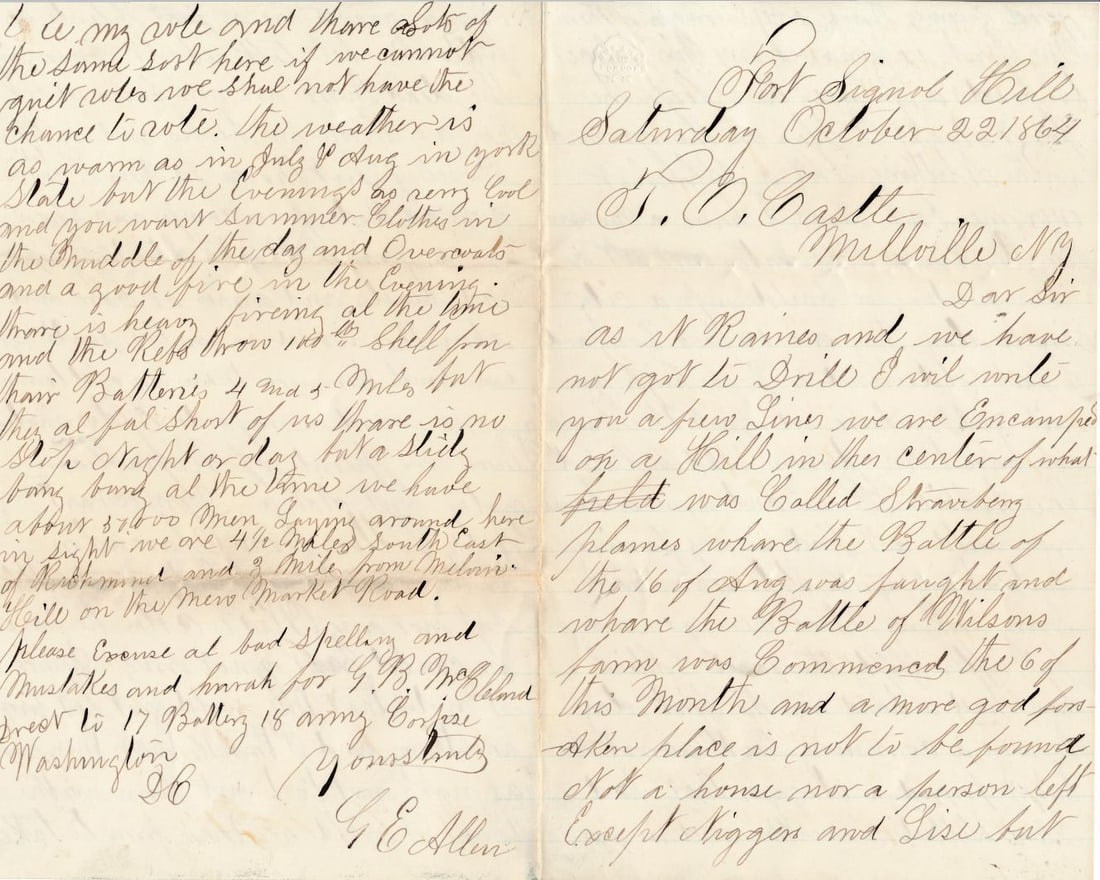 Fort Signol Hill
Saturday October 22 1864
T. O. Castle
Millville NY
Dar Sir
as it Raines and we have
not got to Drill I wil write
you a few Lines we are Encamped
on a Hill in ther center of what
field was Called Straweberg
plames whare the Battle of
the 16 of Aug was faught and
whare the Battle of Wilsons
farm was Commenced the 6 of
this Month and a more god fors-
aken place is not to be found
Not a house nor a person left
Except Niggers and Lise but
my vote and thare Lots of
the same sort here if we cannot
quiet votes we shal not have the
chance to vote. the weather is
as warm as in July & Aug in york
State but the Evenings as verry Cool
and you want Summer Clothes in
the Middle of the day and Overcoats
and a good fire in the Evening.
thare is heavy fireing al the time
and the Rebs throw 100 lb Shell from
thair Batteries 4 and 5 Miles but
they al fal short of us thare is no
Stop Night or day but a Stidy
bang bang al the time we have
about 50000 Men Laying around here
in sight we are 4 1/2 Miles South East
of Richmond and 2 Mile from Melvin
Hill on the New Market Road.
please Excuse al bad Spelling and
Mustakes and hurah for G. B. McCleland
Drect to 17 Battery 18 army Corpse
Washington
DC
Yours truly
G E Allen